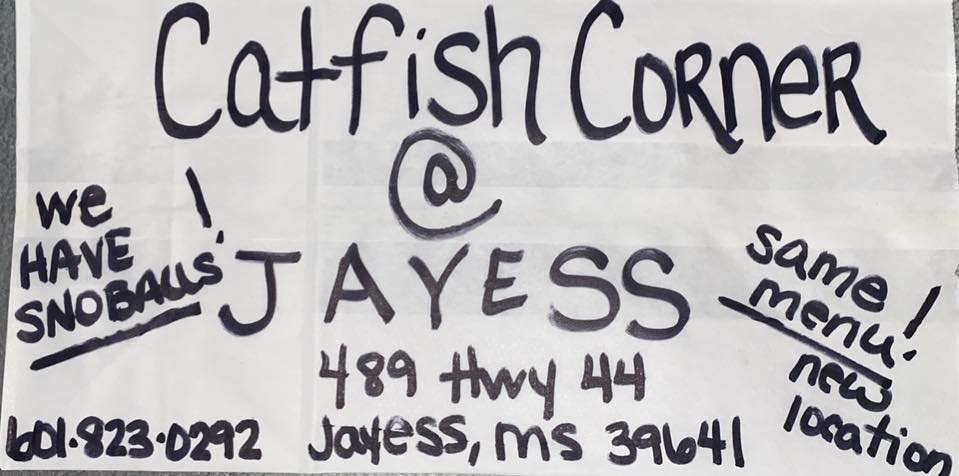 Catfish Corner
@
JAYESS
we
HAVE
SNOBALLS!
same
menu!
new
location
489 Hwy 44
Jayess, MS 39641
601.823.0292